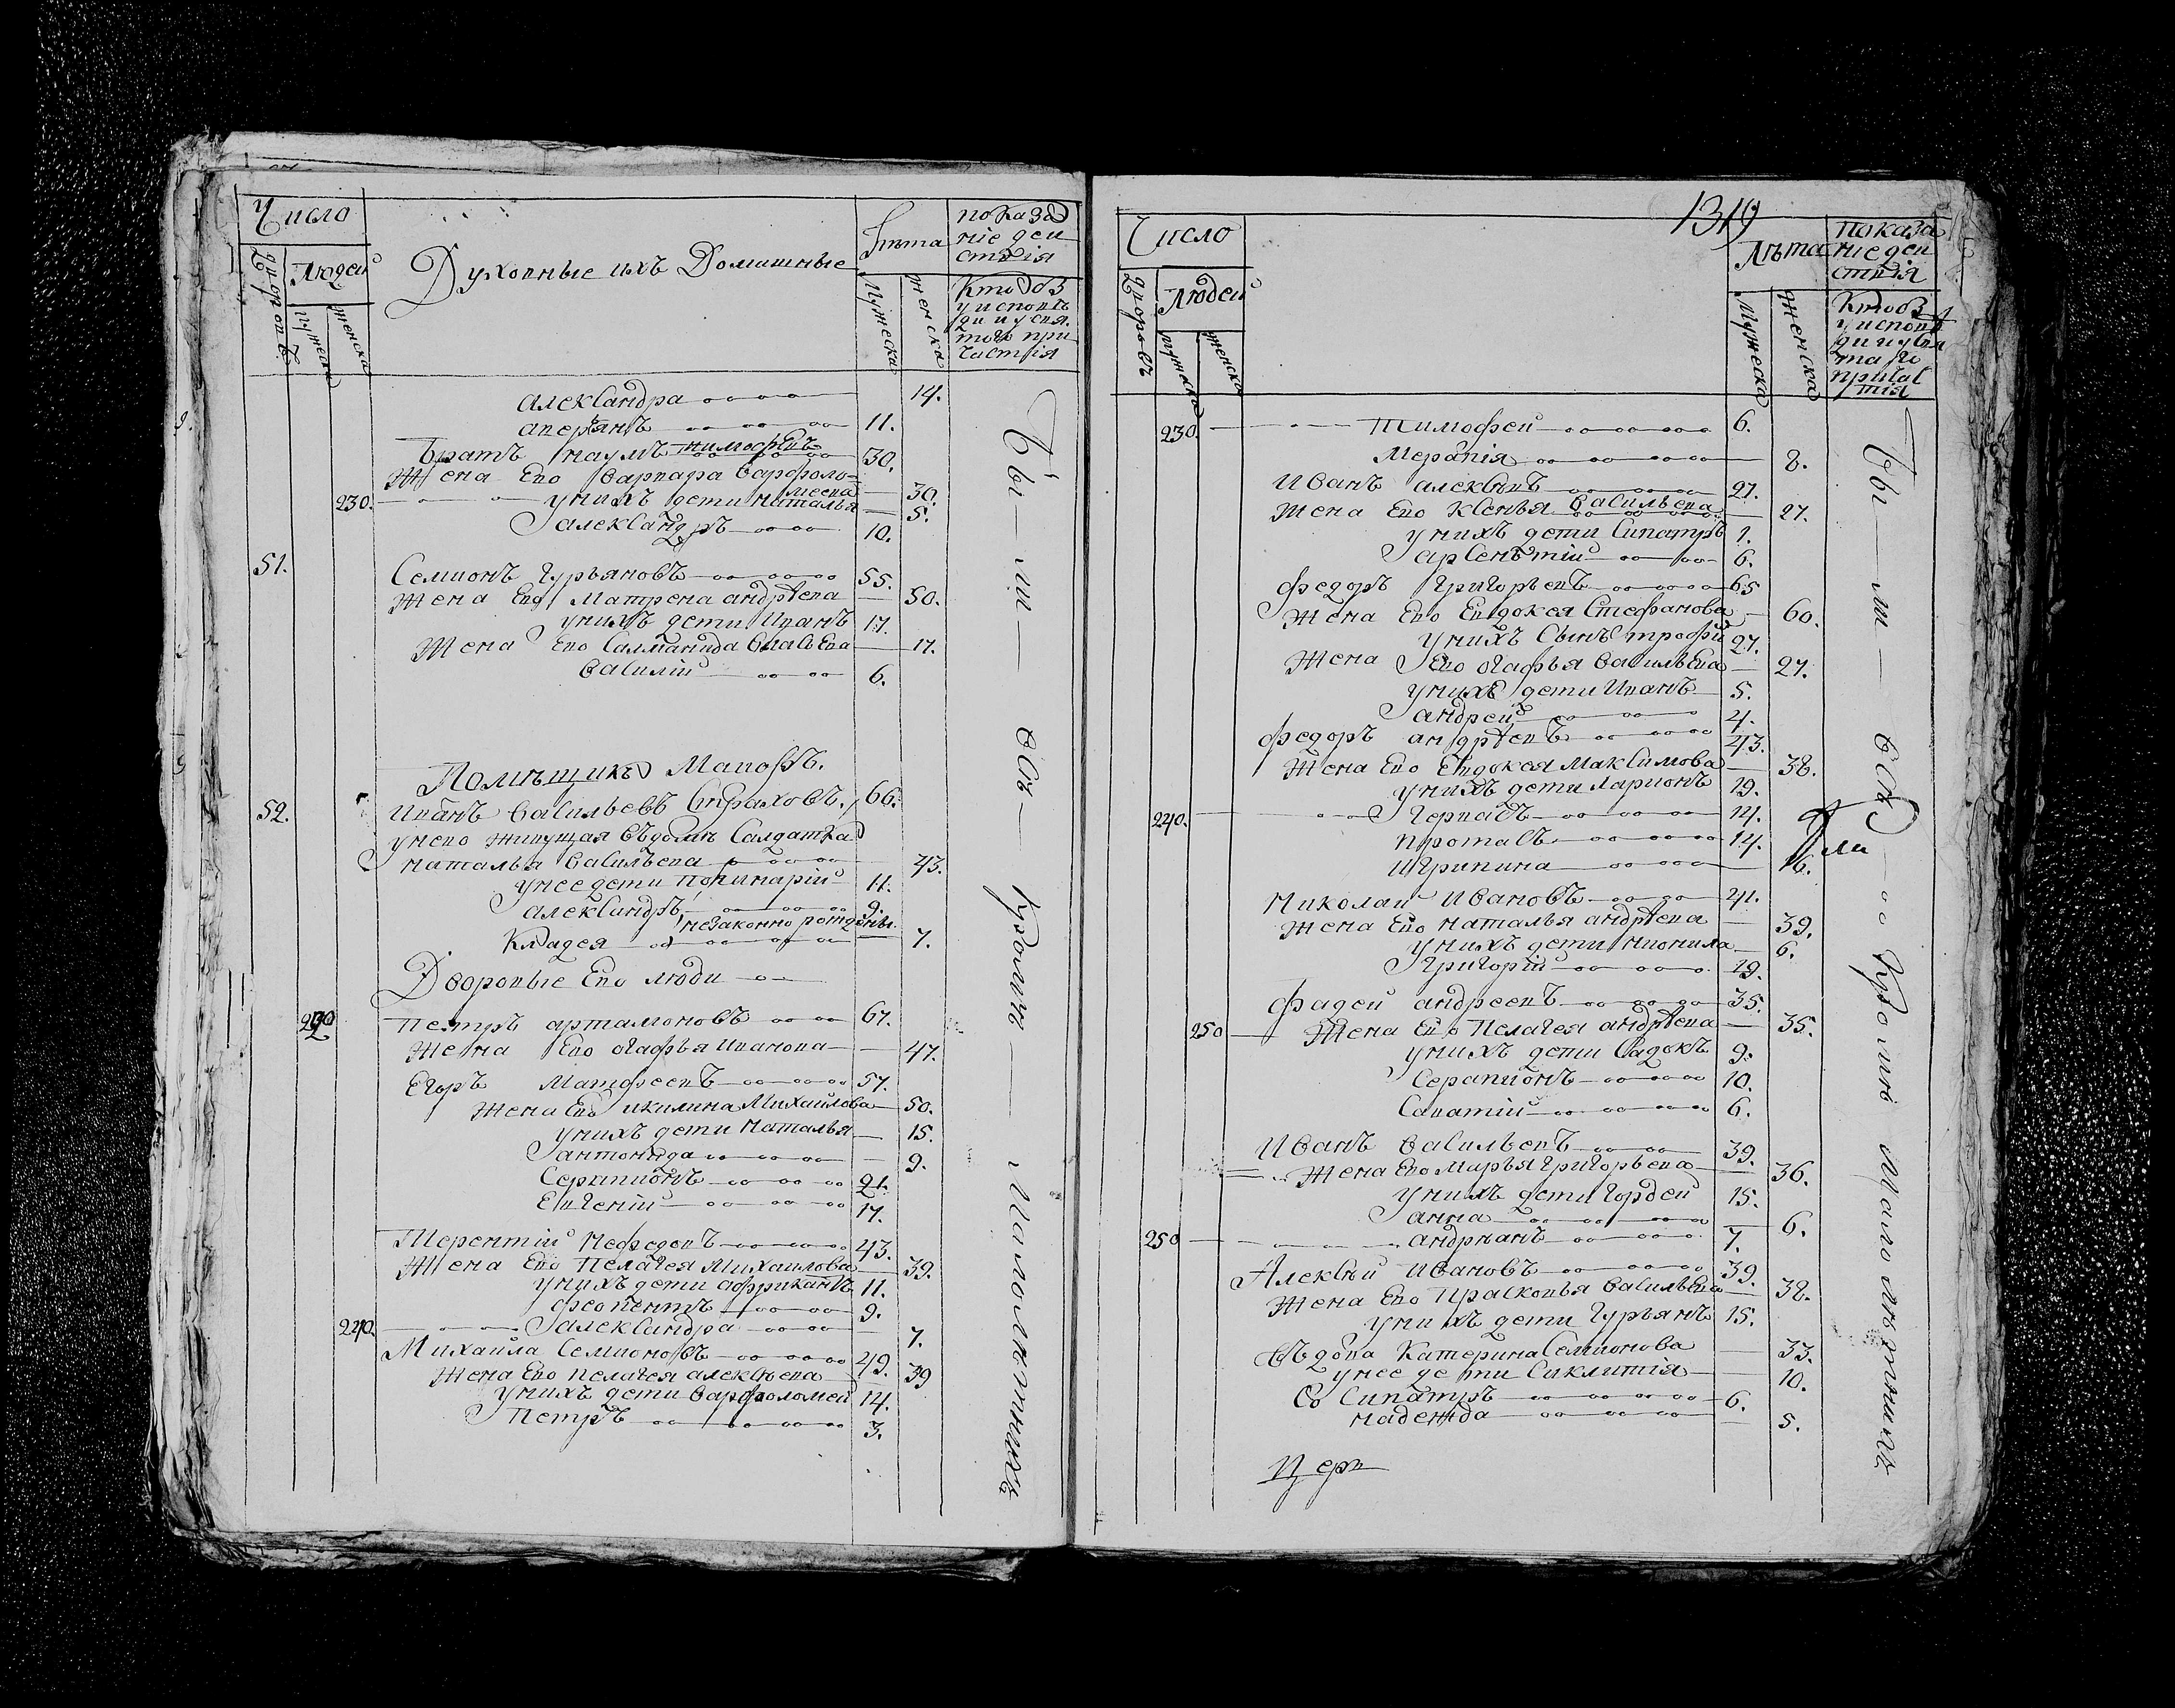 Число
Людей
дворовъ
мужеска
женска
Духовные ихъ Домашные
Лѣта
мужеска
женска
показа
ние деи
ствiя
Кто добъ
у исповѣ
ди и у свя
того при
частiя
Александра 14.
аверянъ 11.
Братъ Наумъ тимофѣевъ 30.
Жена Ево Варвара варфоло=
меева 30.
230. унихъ дети наталья 5.
александръ 10.
51. Семионъ Гурьяновъ 55.
Жена Ево Матрена андрѣева 50.
унихъ дети Иванъ 17.
Жена Ево Саламанида Власьева 17.
василiй 6.
Помѣщикъ Маiоръ.
52. Иванъ васильевъ Страховъ. 66.
унево живущая въдомѣ Салдатка
наталья васильева 43.
унее дети Поликарпiй 11.
александръ 9.
незаконно рожденны.
Клавдея 7.
Дворовые Ево люди
230 петръ артамоновъ 67.
Жена Ево Агафья Иванова 47.
Егоръ Матфеевъ 57.
Жена Ево икилина Михайлова 50.
унихъ дети наталья 15.
антонида 9.
Серапионъ 21.
Евгенiй 17.
Терентiй Нефедевъ 43.
Жена Ево Пелагея Михаилова 39.
унихъ дети африканъ 11.
феопентъ 9.
240. александра 7.
Михаила Семионовъ 49.
Жена Ево пелагея алексѣева 39
унихъ дети варфоломей 14.
Петръ 3.
Бы — ли — всѣ — кромѣ — Малолѣтнихъ
1319
Число
Людей
дворовъ
мужеска
женска
Лѣта
мужеска
женска
показа
ние деи
ствiя
Кто добъ
у исповѣ
ди и у свя
таго
причас
тiя
230. Тимофей 6.
Меравiя 8.
Иванъ алексѣевъ 27.
Жена Ево Ксенья васильева 27.
унихъ дети Сипатръ 1.
арсенътiй 6.
федоръ григорьевъ 65
Жена Ево Евдокея Стефанова 60.
унихъ Сынъ трофи 27.
Жена Ево Агафья васильева 27.
унихъ дети Иванъ 5.
андрей 4.
федоръ андрѣевъ 43.
Жена Ево Евдокея Максимова 38.
унихъ дети Ларионъ 19.
240. Гервасъ 14.
протасъ 14.
Игрипина 16.
Николай Ивановъ 41.
Жена Ево наталья андрѣева 39.
унихъ дети неонила 6.
григорiй 19.
фадей андреевъ 35.
250 Жена Ево Пелагея андрѣева 35.
унихъ дети Садокъ 9.
Серапионъ 10.
Саватiй 6.
Иванъ васильевъ 39.
Жена Ево Марья григорьева 36.
унихъ дети гордей 15.
анна 6.
250 андрианъ 7.
Алексѣй Ивановъ 39.
Жена Ево Прасковья васильева 38.
унихъ дети Гурьянъ 15.
Въдова Катерина Семионова 33.
унее дети Сиклитiя 10.
Сипатръ 6.
надежда 5.
Церк
Бы — ли — всѣ — Кромѣ Малолѣтнихъ